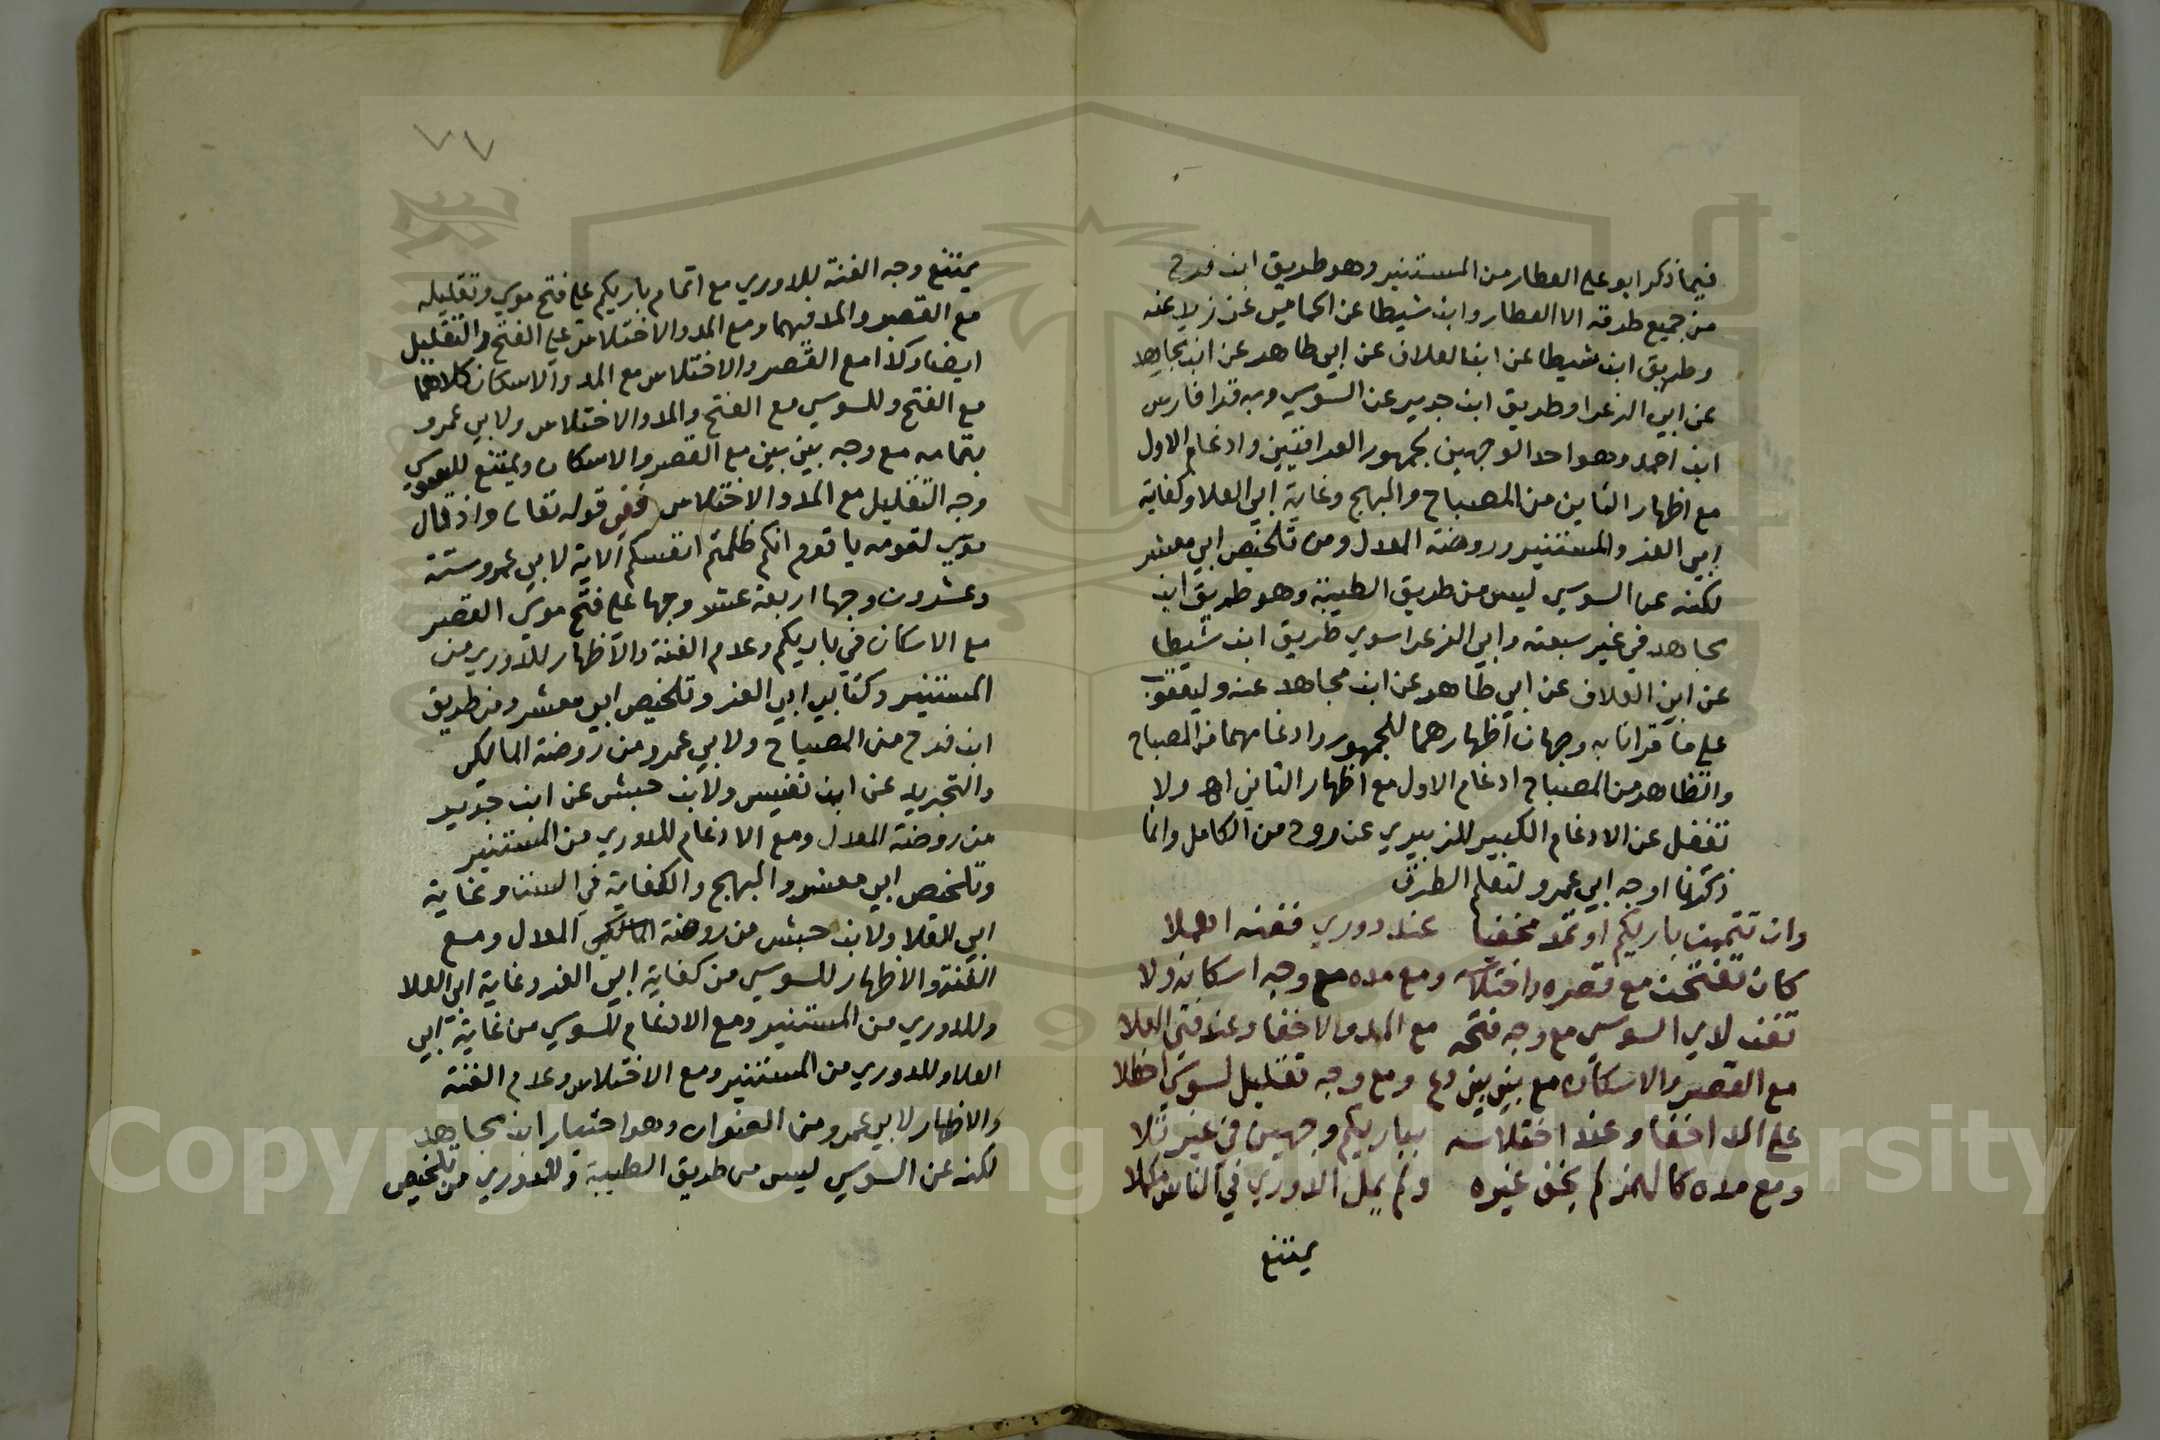 فيما ذكر ابو علي العطار من المستنير وهو طريق ابن فرح
من جميع طرقه الا العطار وابن شيطا عن الحمامي عن زيد عنه
وطريق ابن شيطا عن ابن العلاف عن ابي طاهر عن ابن مجاهد
عن ابي الزعرا وطريق ابن جرير عن السوسي وبه قرا فارس
ابن احمد وهو احد الوجهين لجمهور العراقيين وادغام الاول
مع اظهار الثاني من المصباح والمبهج وغاية ابي العلا وكفاية
ابي العز والمستنير وروضة المعدل ومن تلخيص ابي معشر
لكنه عن السوسي ليس من طريق الطيبة وهو طريق ابن
مجاهد في غير سبعته وابي الزعرا سوي طريق ابن شيطا
عن ابن العلاف عن ابي طاهر عن ابن مجاهد عنه وليعقوب
علي ما قرانا به وجهان اظهارهما للجمهور وادغامهما من المصباح
والظاهر من المصباح ادغام الاول مع اظهار الثاني اهـ ولا
تغفل عن الادغام الكبير للزبيري عن روح من الكامل وانما
ذكرنا اوجه ابي عمرو لتعلم الطرق
وان تتممن باريكم او تمد مخفيا عند دوري فغنه اهملا
كان تفتحن مع قصره واختلاسه ومع مده مع وجه اسكانه ولا
تغن لدي السوسي مع وجه فتحه مع المد والاخفا وعند فتي العلا
مع القصر والاسكان مع بين بين دع ومع وجه تقليل لسوسي احظلا
علي المد اخفا وعند اختلاسه بباريكم وجهين في غير تلا
ومع مده كالهمز لم يخف غيره ولم يمل الدوري في الناس مكملا
يمتنع
٧٧
يمتنع وجه الغنة للدوري مع اتمام باريكم علي فتح موسي وتقليله
مع القصر والمد فيهما ومع المد والاختلاس علي الفتح والتقليل
ايضا وكذا مع القصر والاختلاس مع المد والاسكان كلاهما
مع الفتح وللسوسي مع الفتح والمد والاختلاس ولابي عمرو
بتمامه مع وجه بين بين مع القصر والاسكان ويمتنع للسوسي
وجه التقليل مع المد والاختلاس ففي قوله تعالي واذ قال
موسي لقومه يا قوم انكم ظلمتم انفسكم الاية لابي عمرو ستة
وعشرون وجها اربعة عشر وجها علي فتح موسي القصر
مع الاسكان في باريكم وعدم الغنة والاظهار للدوري من
المستنير وكتابي ابي العز وتلخيص ابي معشر ومن طريق
ابن فرح من المصباح ولابي عمرو من روضة المالكي
والتجريد عن ابن نفيس ولابن حبش عن ابن جرير
من روضة المعدل ومع الادغام للدوري من المستنير
وتلخيص ابي معشر والمبهج والكفاية في الست وغاية
ابي العلا ولابن حبش من روضة المالكي المعدل ومع
الغنة والاظهار للسوسي من كفاية ابي العز وغاية ابي العلا
وللدوري من المستنير ومع الادغام للسوسي من غاية ابي
العلا وللدوري من المستنير ومع الاختلاس وعدم الغنة
والاظهار لابي عمرو من العنوان وهو اختيار ابن مجاهد
لكنه عن السوسي ليس من طريق الطيبة وللدوري من تلخيص
Copyright © King Saud University